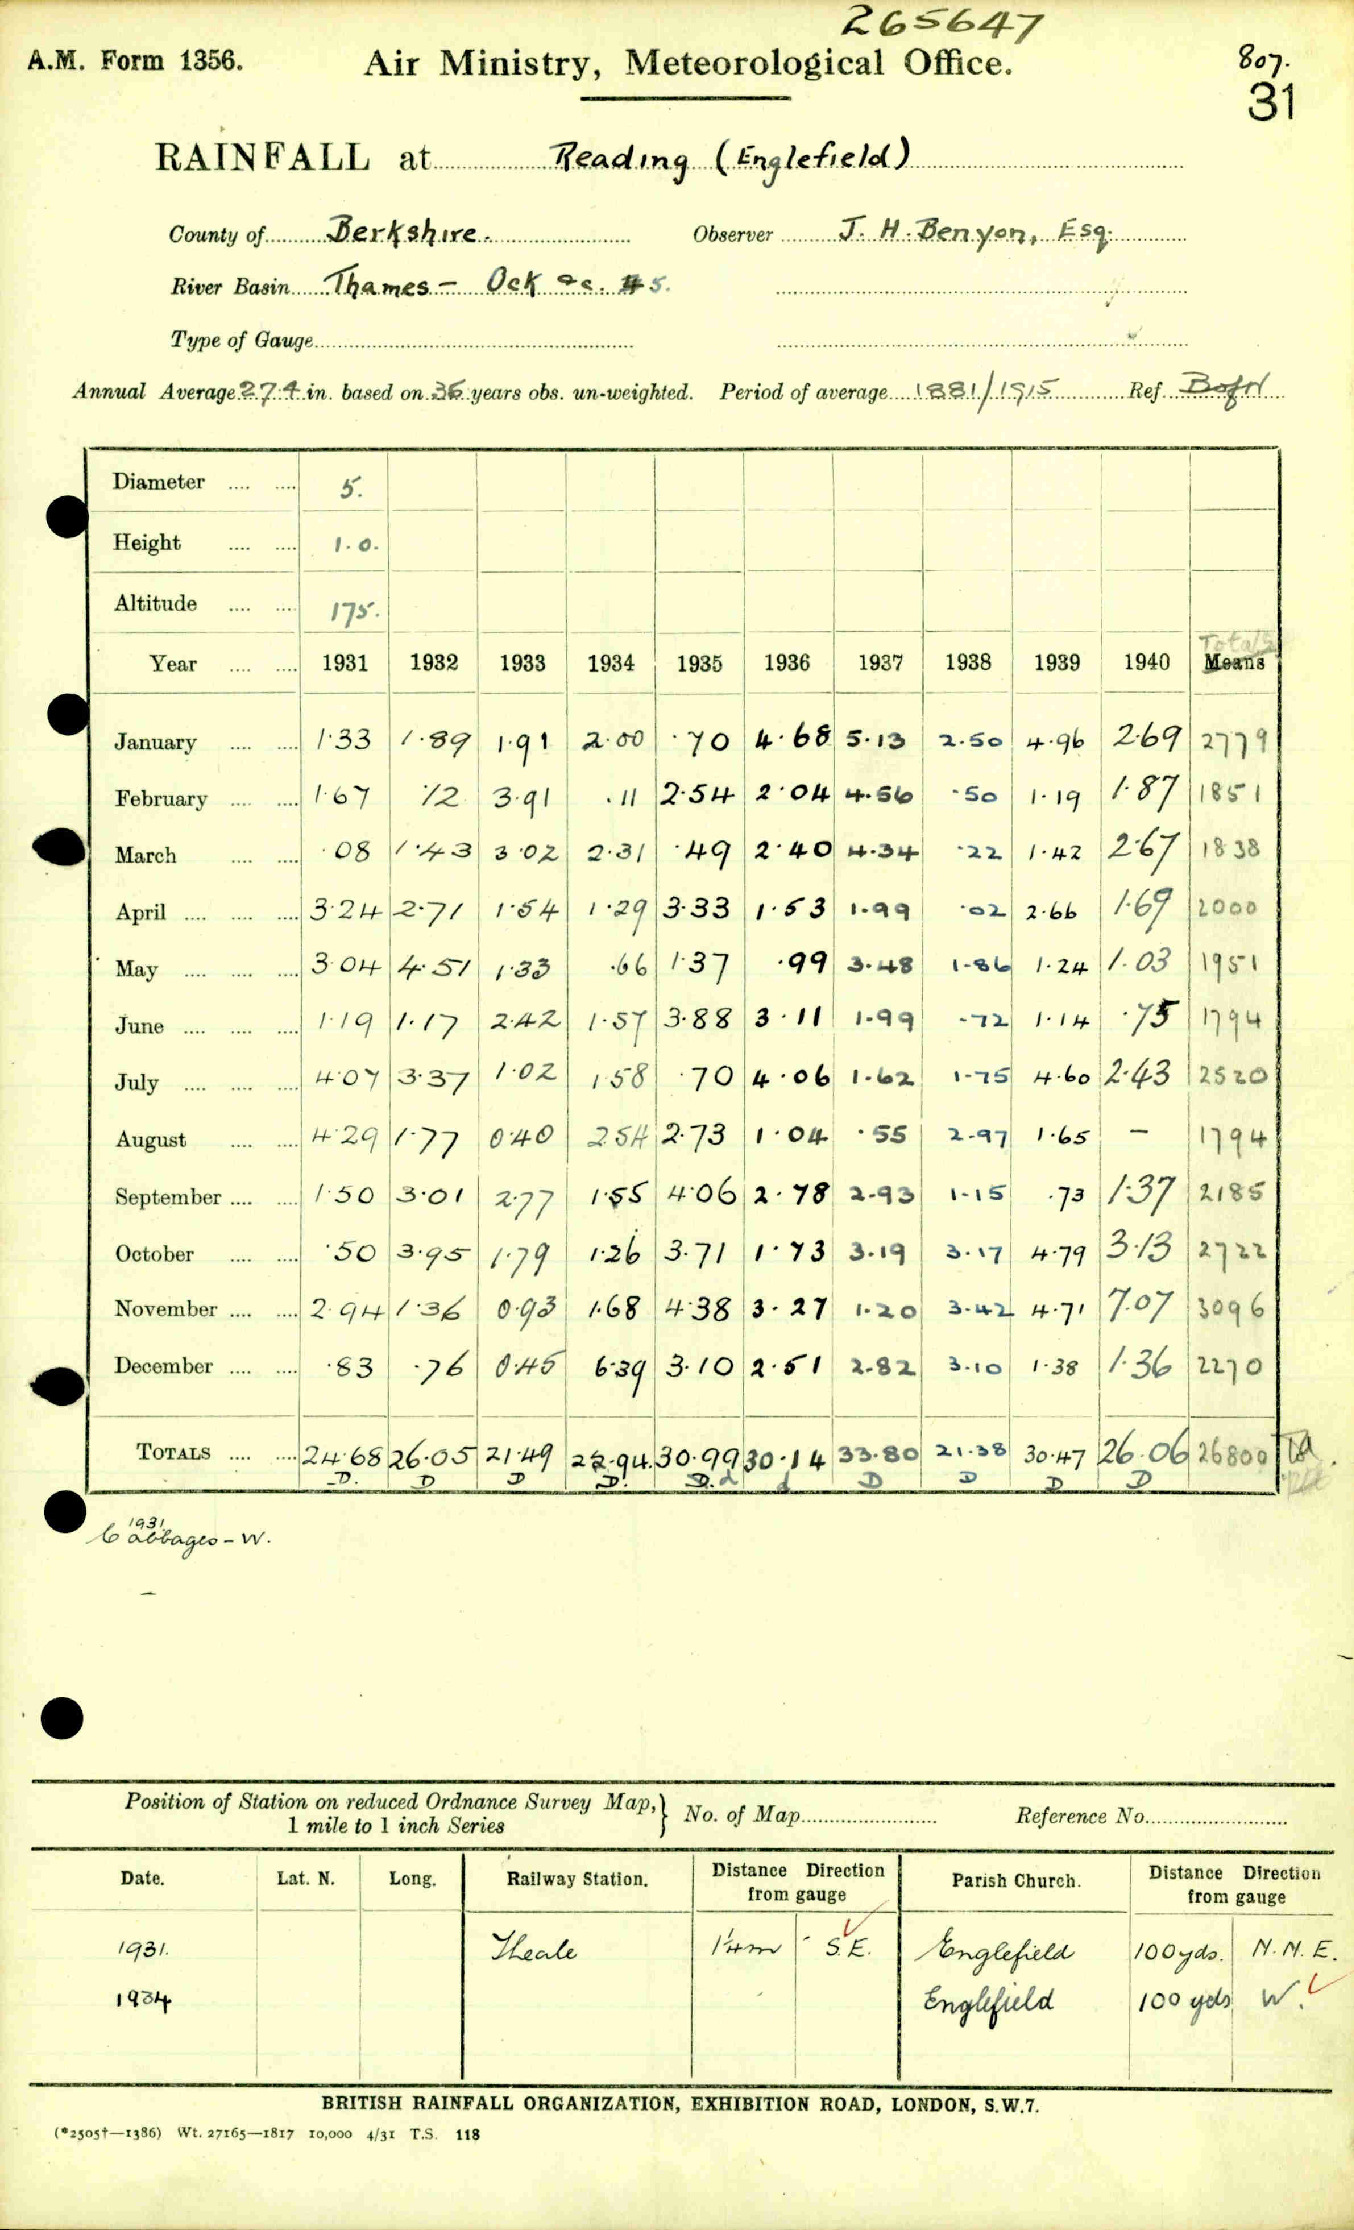 265647
A.M. Form 1356. Air Ministry, Meteorological Office. 807.
31
RAINFALL at Reading (Englefield)
County of Berkshire. Observer J. H. Benyon, Esq.
River Basin Thames - Ock &c. 5.
Type of Gauge
Annual Average 27.4 in. based on 35 years obs. un-weighted. Period of average 1881/1915 Ref.
Diameter .... .... 5.
Height .... .... 1.0.
Altitude .... .... 175.
Totals
Year .... .... 1931 1932 1933 1934 1935 1936 1937 1938 1939 1940 Means
January .... .... 1.33 1.89 1.91 2.00 .70 4.68 5.13 2.50 4.96 2.69 2779
February .... .... 1.67 .12 3.91 .11 2.54 2.04 4.56 .50 1.19 1.87 1851
March .... .... .08 1.43 3.02 2.31 .49 2.40 4.34 .22 1.42 2.67 1838
April .... .... .... 3.24 2.71 1.54 1.29 3.33 1.53 1.99 .02 2.66 1.69 2000
May .... .... .... 3.04 4.51 1.33 .66 1.37 .99 3.48 1.86 1.24 1.03 1951
June .... .... .... 1.19 1.17 2.42 1.57 3.88 3.11 1.99 .72 1.14 .75 1794
July .... .... .... 4.07 3.37 1.02 1.58 .70 4.06 1.62 1.75 4.60 2.43 2520
August .... .... 4.29 1.77 0.40 2.54 2.73 1.04 .55 2.97 1.65 - 1794
September .... .... 1.50 3.01 2.77 1.55 4.06 2.78 2.93 1.15 .73 1.37 2185
October .... .... .50 3.95 1.79 1.26 3.71 1.73 3.19 3.17 4.79 3.13 2722
November .... .... 2.94 1.36 0.93 1.68 4.38 3.27 1.20 3.42 4.71 7.07 3096
December .... .... .83 .76 0.45 6.39 3.10 2.51 2.82 3.10 1.38 1.36 2270
TOTALS .... .... 24.68 26.05 21.49 22.94 30.99 30.14 33.80 21.38 30.47 26.06 26800
D. D D D. D. d d D D D D
1931
Cabbages - W.
Position of Station on reduced Ordnance Survey Map,
1 mile to 1 inch Series } No. of Map Reference No.
Date. Lat. N. Long. Railway Station. Distance Direction from gauge Parish Church. Distance Direction from gauge
1931. Theale 1¼m S.E. Englefield 100yds. N.N.E.
1934 Englefield 100 yds W.
BRITISH RAINFALL ORGANIZATION, EXHIBITION ROAD, LONDON, S.W.7.
(*2505†—1386) Wt. 27165—1817 10,000 4/31 T.S. 118